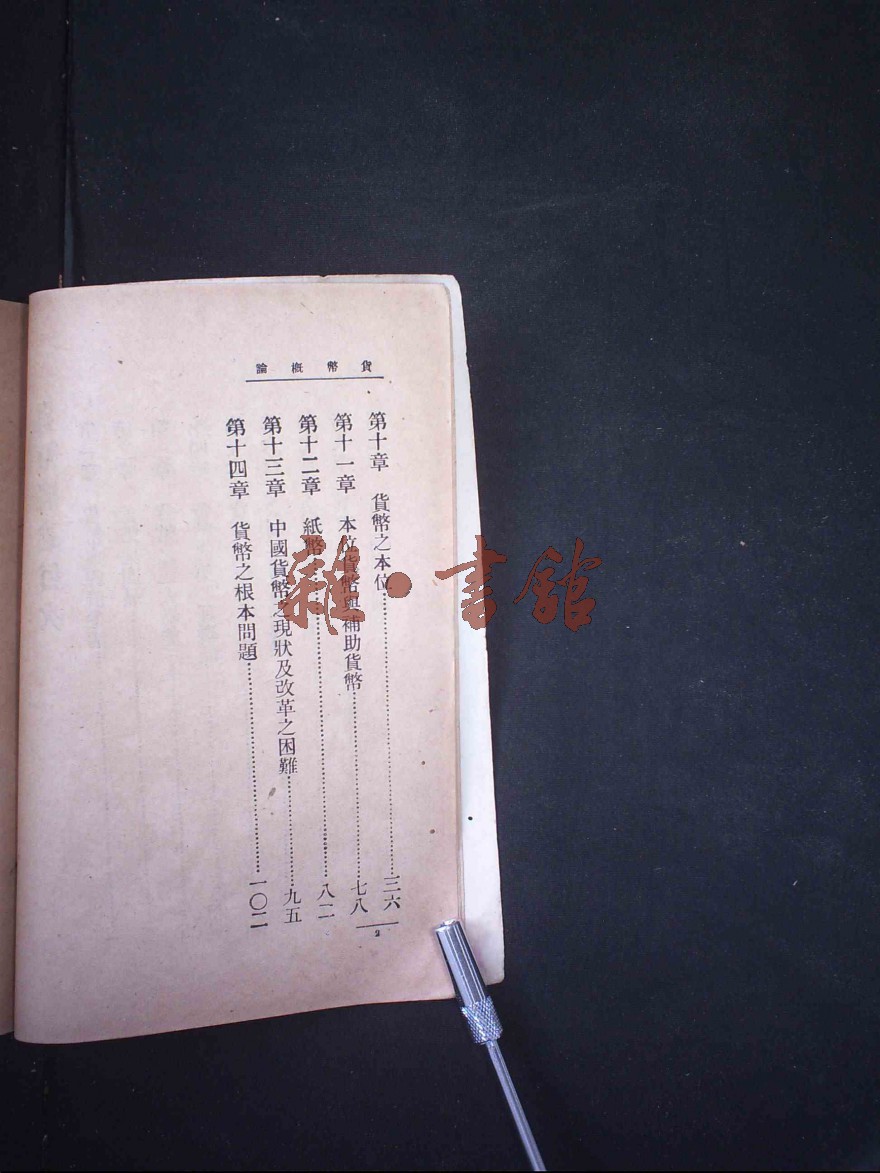 貨幣概論
第十章　貨幣之本位⋯⋯三六
第十一章　本位貨幣與補助貨幣⋯⋯七八
第十二章　紙幣⋯⋯八二
第十三章　中國貨幣之現狀及改革之困難⋯⋯九五
第十四章　貨幣之根本問題⋯⋯一〇二
2
雜·書館